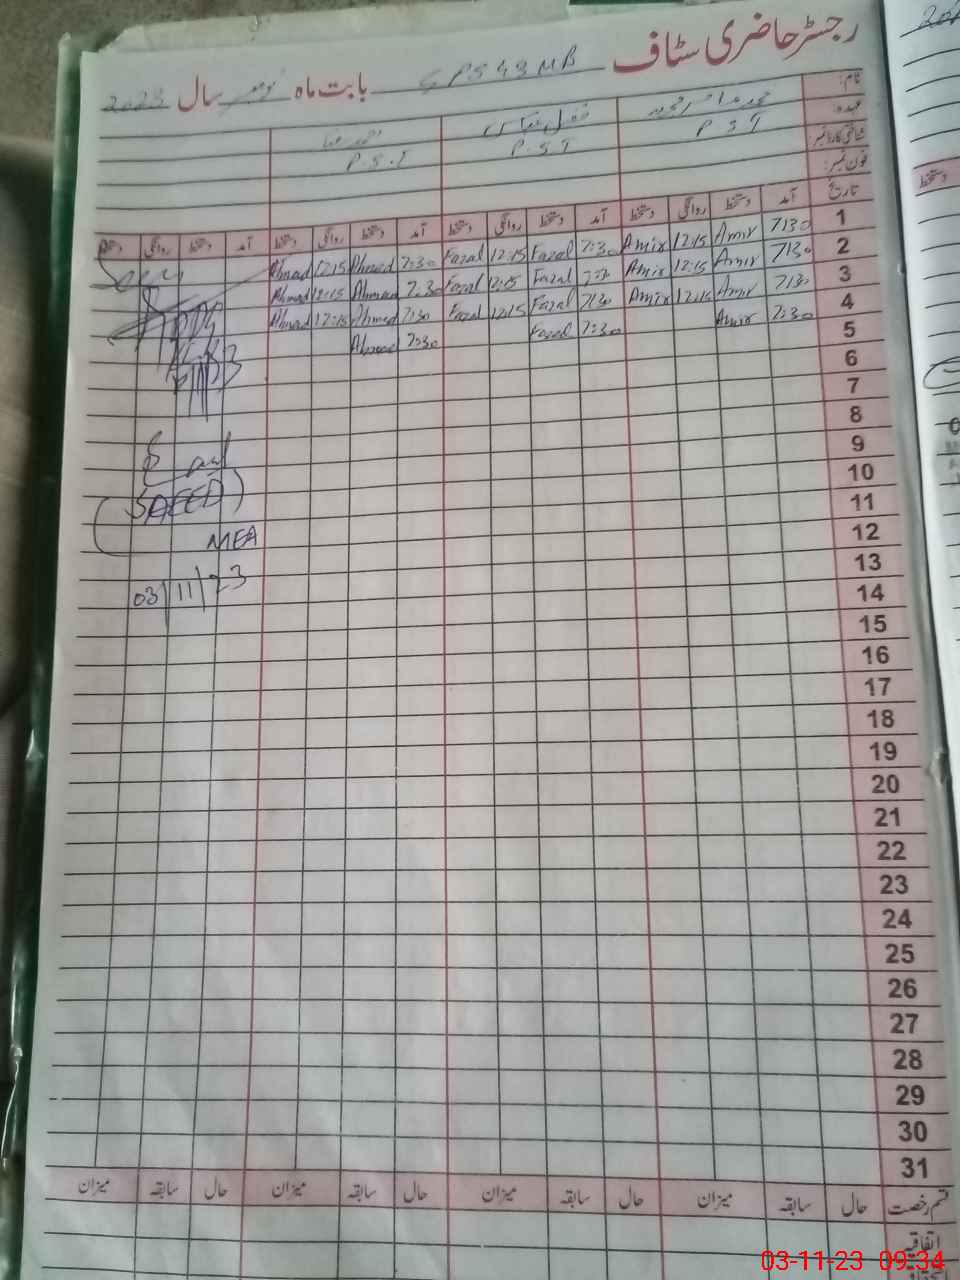 رجسٹر حاضری سٹاف GPS 43 MB بابت ماہ نومبر سال 2023
نام:
عہدہ: P S T P. S T P. S. T
شناختی کارڈ نمبر:
فون نمبر:
تاریخ آمد دستخط روانگی دستخط آمد دستخط روانگی دستخط آمد دستخط روانگی دستخط آمد دستخط روانگی دستخط
1 7:30 Amir 12:15 Amir 7:30 Fazal 12:15 Fazal 7:30 Ahmad 12:15 Ahmad
2 7:30 Amir 12:15 Amir 7:30 Fazal 12:15 Fazal 7:30 Ahmad 12:15 Ahmad
3 7:30 Amir 12:15 Amir 7:30 Fazal 12:15 Fazal 7:30 Ahmad 12:15 Ahmad
4 7:30 Amir 7:30 Fazal 7:30 Ahmad
5
6
7
8
9
10
11
12
13
14
15
16
17
18
19
20
21
22
23
24
25
26
27
28
29
30
31
(SAEED)
MEA
03/11/23
قسم رخصت حال سابقہ میزان حال سابقہ میزان حال سابقہ میزان حال سابقہ میزان
اتفاقیہ
دستخط
03-11-23 09:34